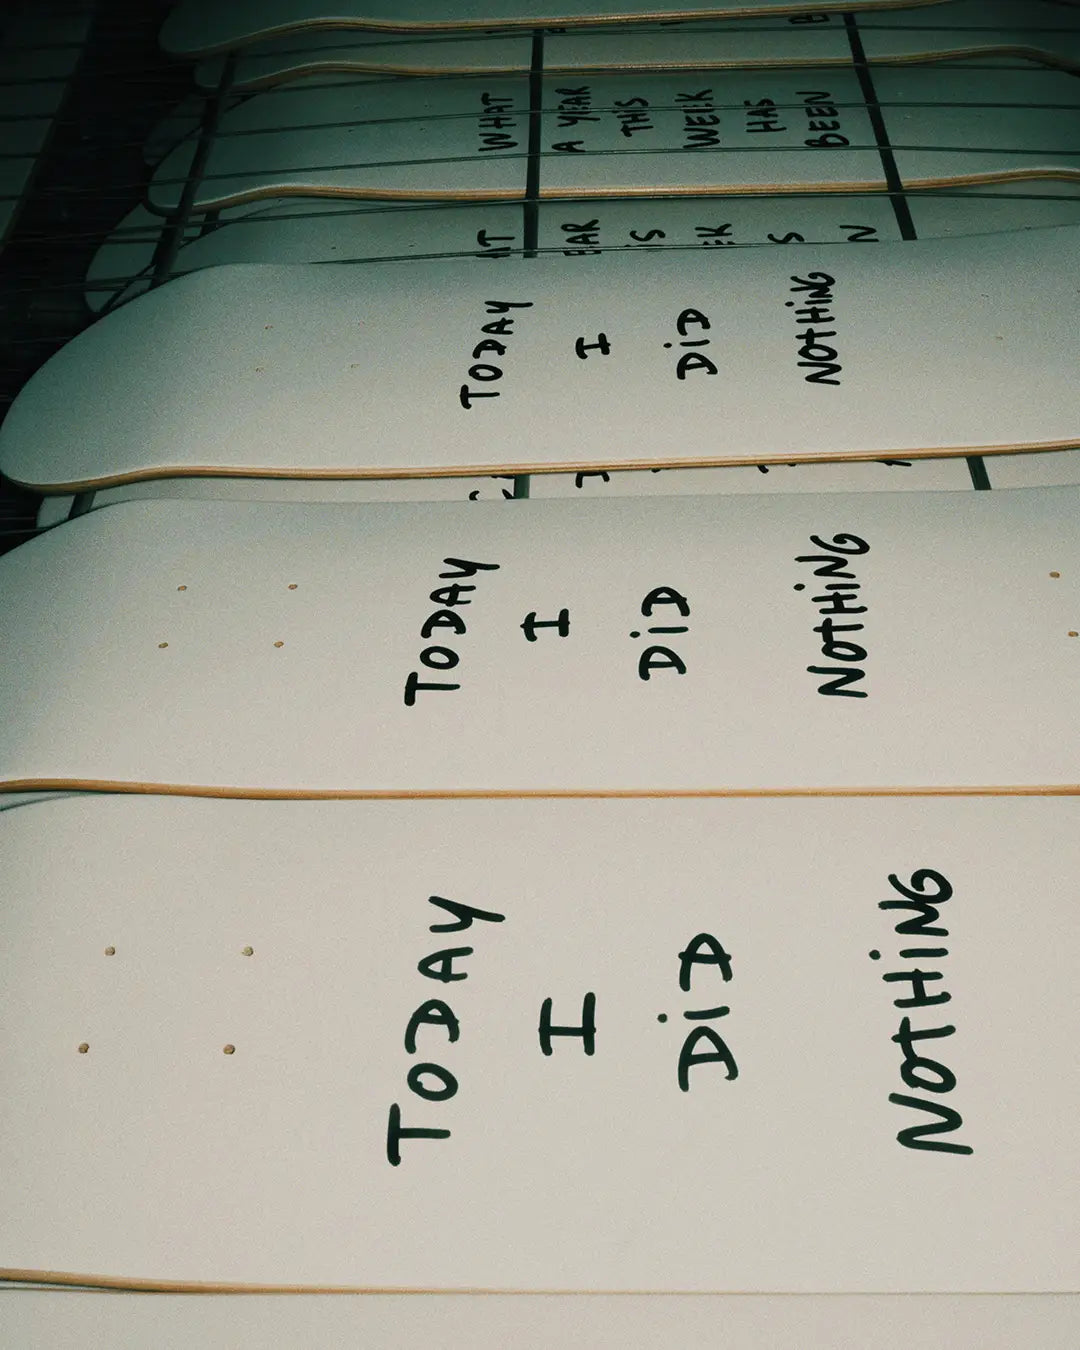 WHAT
A YEAR
THIS
WEEK
HAS
BEEN
TODAY
I
DiD
NOTHiNG
TODAY
I
DiD
NOTHiNG
TODAY
I
DiD
NOTHiNG